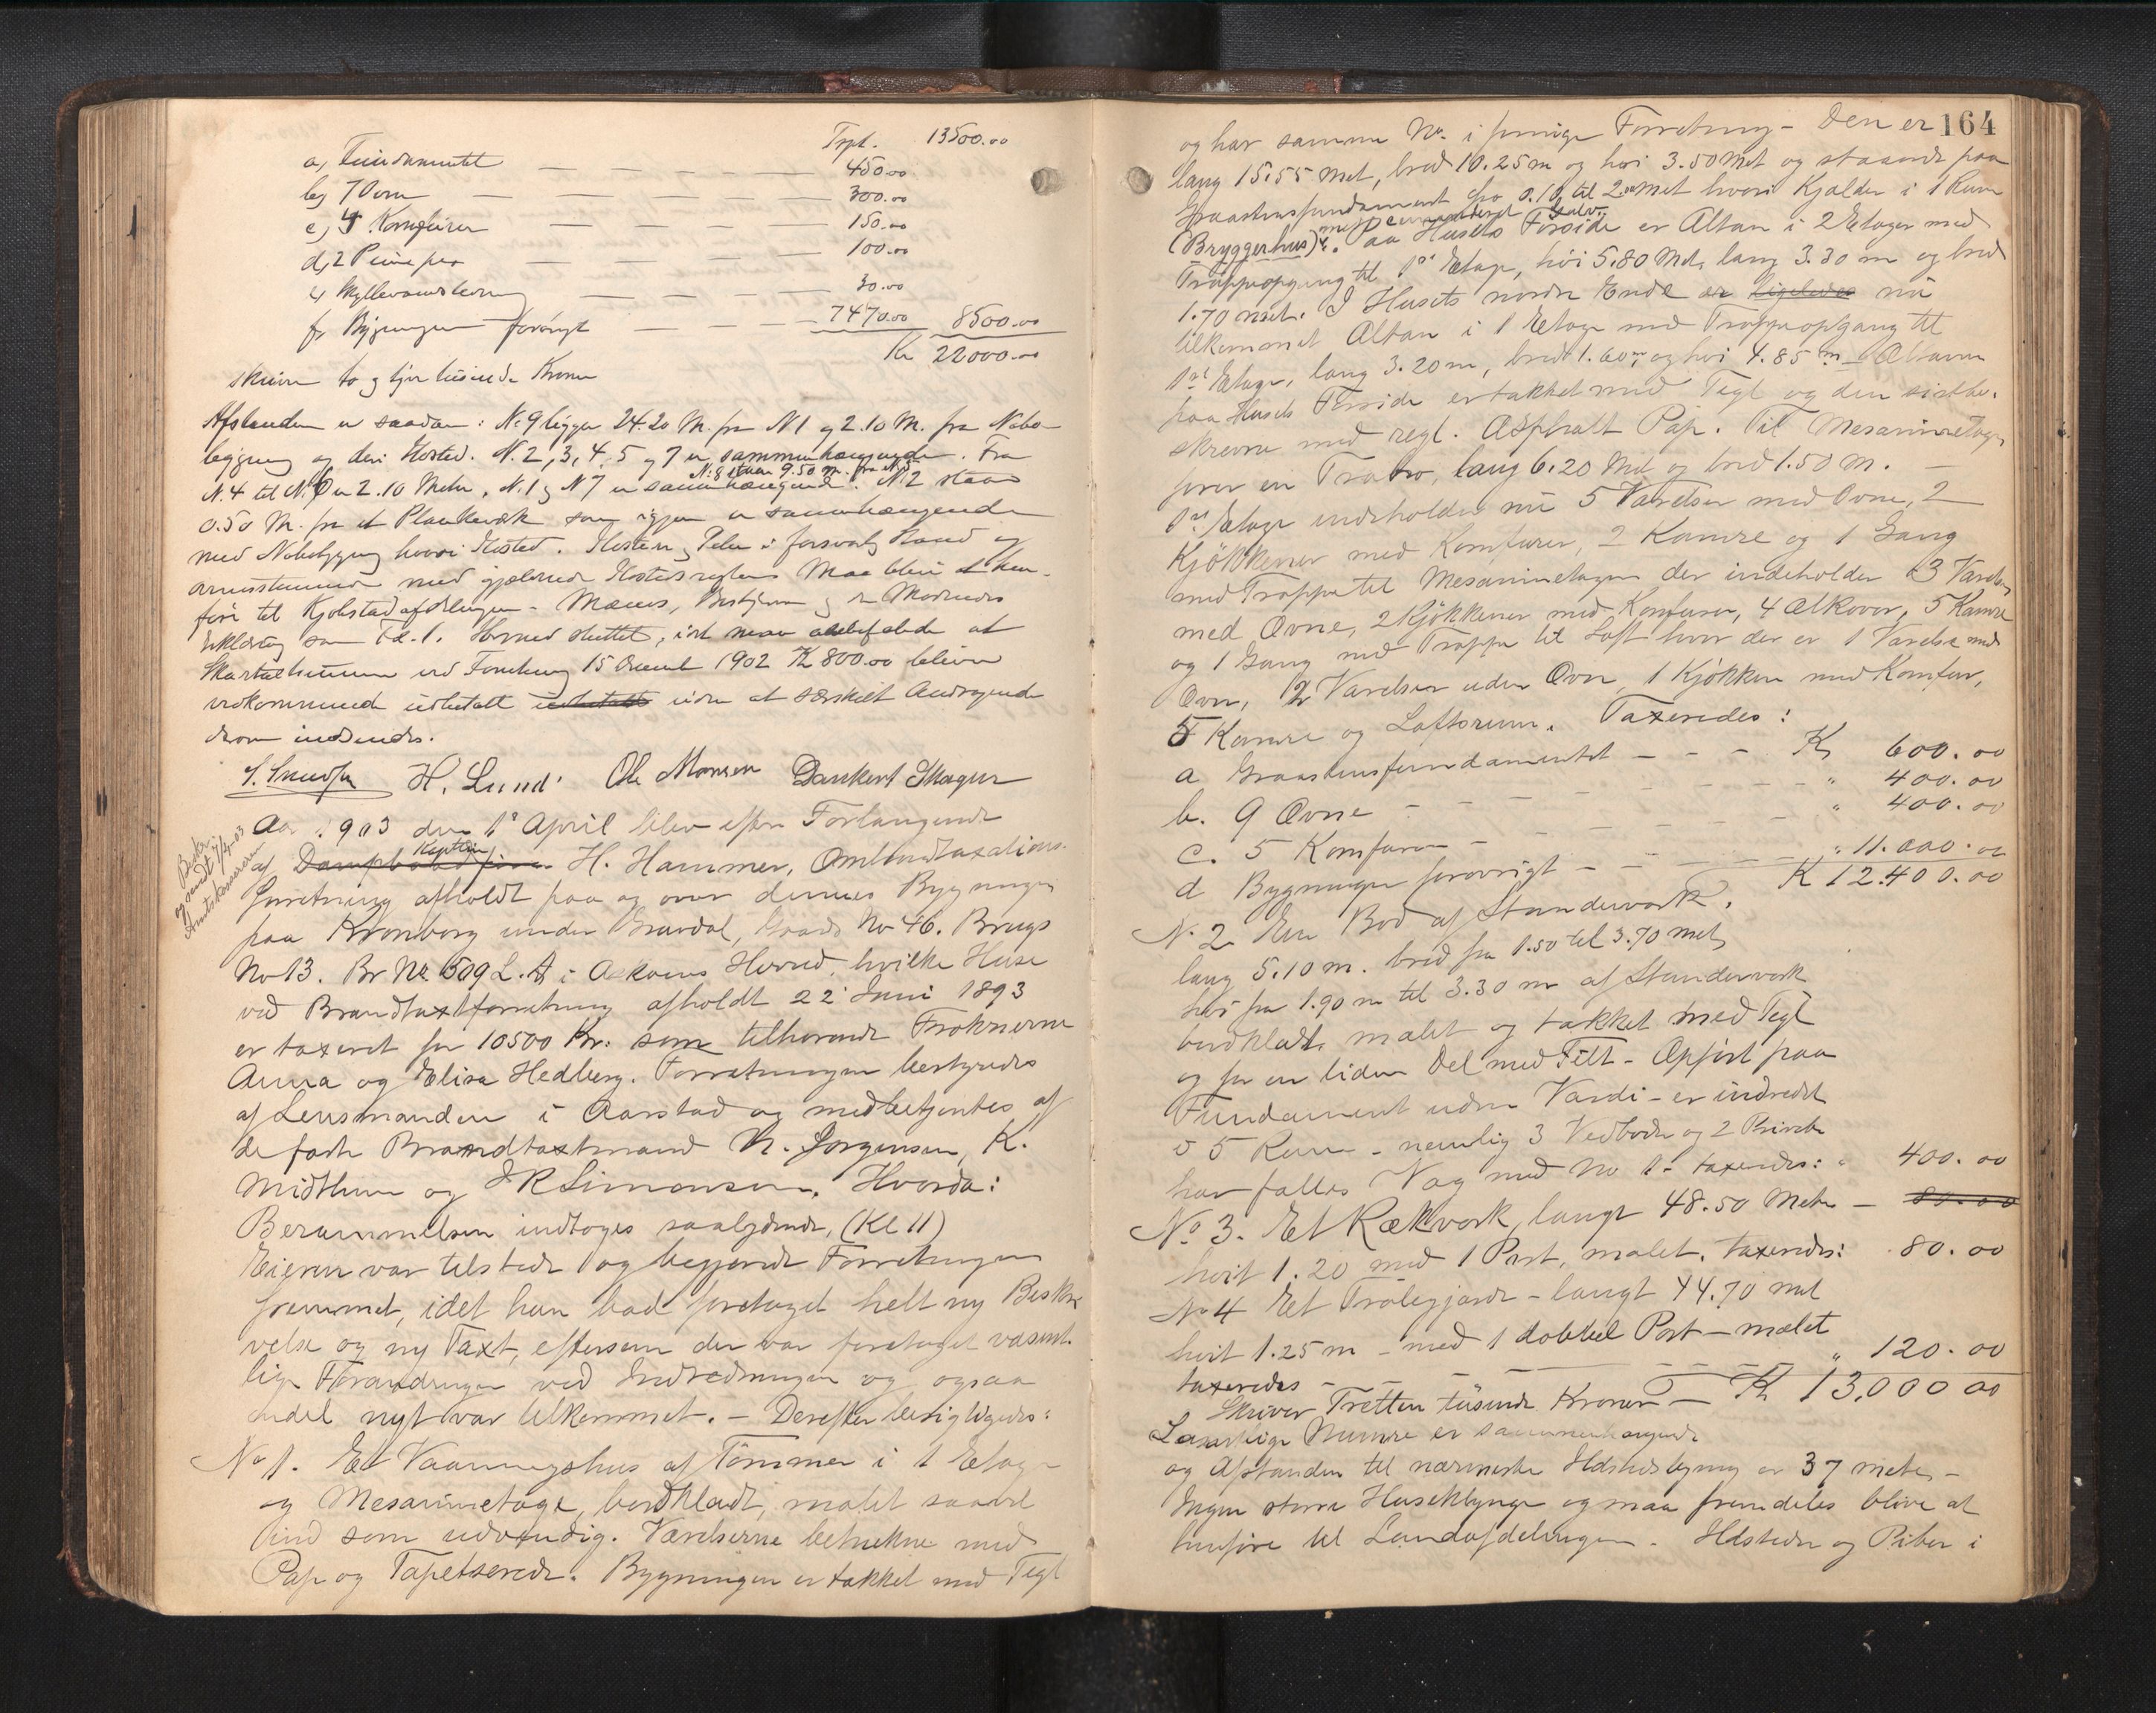 Trpt. 13500.00
a, Fundamentet — — — — 450.00
b, 7 Ovne — — — — 300.00
c, 4 Komfurer — — — 150.00
d, 2 — — — 100.00
e, Skyllevandsledning — — — 30.00
f, Bygningen forøvrigt — — — 7470.00 8500.00
Kr 22000.00
skriver to og tyve tusinde Kroner
Afstanden er saadan: N. 9 ligger 24.20 M. fra N 1 og 2.10 M. fra Nabo-
bygning og deri Ildsted. N. 2, 3, 4, 5 og 7 er sammenhængende. Fra
N. 8 staar 9.50 m. fra N
N. 4 til N. 6 er 2.10 Meter, N. 1 og N 7 er sammenhængende. N. 2 staar
0.50 M. fra et Plankeværk som igjen er sammenhængende
med Nabobygning hvori Ildsted. Ildsteder og Piber i forsvarlig Stand og
overensstemmende med gjældende Ildstedsregler. Maa blive at hen-
føre til Kjøbstadafdelingen. — Mænds, Bestyrers og de Mødendes
Erklæring som Fol. 1. Hermed sluttet, idet man anbefalede at
Skattesummen ved Forretning 15 Decemb 1902 Kr 800.00 bliver
vedkommende udbetalt uden at særskilt Andragende
derom indsendes.
H. Lund Ole Monsen Dankert Skagen
Beskr.
og sendt 7/4-03
Amtskasserern
Aar 1903 den 1ste April blev efter Forlangende
Kaptein
af Dampbaadfører H. Hammer, Ombrandtaxations-
forretning afholdt paa og over dennes Bygninger
paa Kronborg under Gravdal, Gaards No 46. Brugs
No 13. Br No 509 L. A i Askøens Herred, hvilke Huse
ved Brandtaxtforretning afholdt 22 Juni 1893
er taxeret for 10500 Kr. som tilhørende Frøknerne
Anna og Elisa Hedberg. Forretningen bestyredes
af Lensmanden i Aarstad og medbetjentes af
de faste Brandtaxtmænd N. Jørgensen, K.
Midthun og J R Simonsen. Hvorda:
Berammelsen indtoges saalydende, (Kl 11)
Eieren var tilstede og begjerede Forretningen
fremmet, idet han bad foretaget helt ny Beskri
velse og ny Taxt, eftersom der var foretaget væsent-
lige Forandringer ved Indredningen og ogsaa
endel nyt var tilkommet. — Derefter besigtigedes:
No 1. Et Vaaningshus af Tømmer i 1 Etage
og Mesaninetage, bordklædt, malet saavel
ind som udvendig. Værelserne betrukne med
Pap og Tapetserede. Bygningen er tækket med Tegl
164
og har samme No. i forrige Forretning — Den er
lang 15.55 Met, bred 10.25 m og høi 3.50 Met og staaende paa
Graastensfundament fra 0.10 til 2.00 Met hvori Kjælder i 1 Rum
med cementeret Gulv.
(Bryggerhus). Paa Husets Forside er Altan i 2 Etager med
Trappeopgang til 1ste Etage, høi 5.80 Met, lang 3.30 m og bred
1.70 met. I Husets nordre Ende er ligeledes nu
tilkommet Altan i 1 Etage med Trappeopgang til
1ste Etage, lang 3.20 m, bred 1.60 m, og høi 4.85 m — Altanen
paa Husets Forside er tækket med Tegl og den sidstbe-
skrevne med regl. Asphalt Pap. Til Mesaninetagen
fører en Træbro, lang 6.20 Met og bred 1.50 m. —
1ste Etage indeholder nu 5 Værelser med Ovne, 2
Kjøkkener med Komfurer, 2 Kamre og 1 Gang
med Trappe til Mesaninetagen der indeholder 3 Værelser
med Ovne, 2 Kjøkkener med Komfurer, 4 Alkover, 5 Kamre
og 1 Gang med Trappe til Loft hvor der er 1 Værelse med
Ovn, 2 Værelser uden Ovn, 1 Kjøkken med Komfur,
5 Kamre og Loftsrum. Taxeredes:
a Graastensfundamentet — — — Kr 600.00
b. 9 Ovne — — — " 400.00
c. 5 Komfurer — — — " 400.00
d Bygningen forøvrigt — — — " 11.000.00
K 12.400.00
No 2 En Bod af Stenderværk.
lang 5.10 m. bred fra 1.50 til 3.70 met,
høi fra 1.90 m til 3.30 m af Stenderværk
bordklædt, malet og tækket med Tegl
og for en liden Del med Filt — Opført paa
Fundament uden Værdi — er indredet
i 5 Rum — nemlig 3 Vedboder og 2 Priveter
har fælles Væg med No 1 — taxeredes: " 400.00
No 3. Et Rækværk, langt 48.50 Meter — 80.00
høit 1.20 med 1 Port, malet. taxeredes: 80.00
No 4 Et Trælegjærde — langt 44.70 met
høit 1.25 m — med 1 dobbel Port — malet
taxeredes — — — " 120.00
Skriver Tretten tusinde Kroner — Kr 13,000 00
Samtlige Numre er sammenhængende
og Afstanden til nærmeste Ildstedsbygning er 37 meter —
Ingen større Huseklynge og maa fremdeles blive at
henføre til Landafdelingen. Ildsteder og Piber i